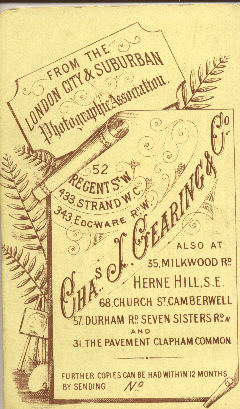 FROM THE
LONDON CITY & SUBURBAN
Photographic Association.
52
REGENT ST W
433, STRAND W.C.
343, EDGWARE RD W.
CHAS J. GEARING & CO
ALSO AT
35, MILKWOOD RD
HERNE HILL, S.E.
68, CHURCH ST, CAMBERWELL
57, DURHAM RD SEVEN SISTERS RD N
AND
31, THE PAVEMENT CLAPHAM COMMON
FURTHER COPIES CAN BE HAD WITHIN 12 MONTHS
BY SENDING NO